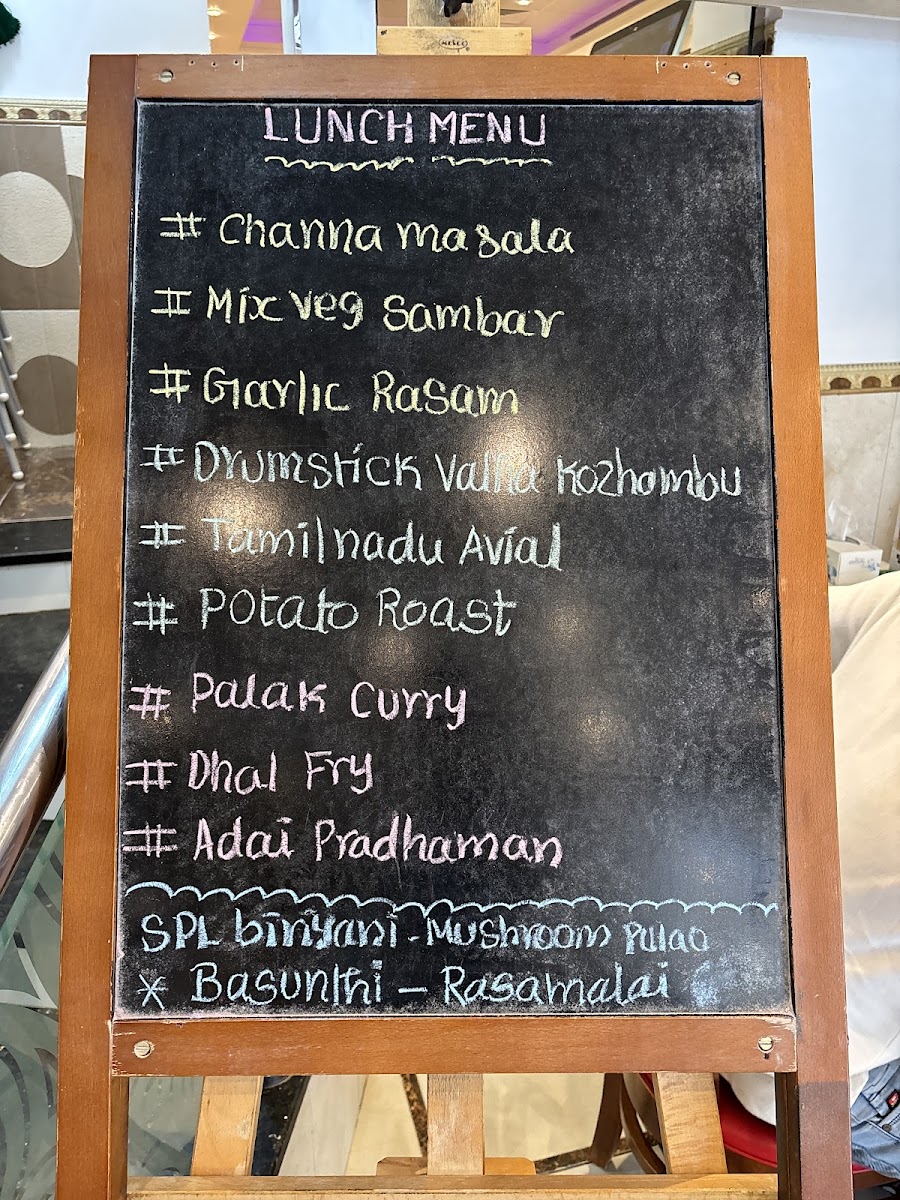 LUNCH MENU
# Channa masala
# Mix veg Sambar
# Garlic Rasam
# Drumstick Vatha Kozhambu
# Tamilnadu Avial
# Potato Roast
# Palak Curry
# Dhal Fry
# Adai Pradhaman
SPL biriyani - Mushroom Pulao
* Basunthi - Rasamalai